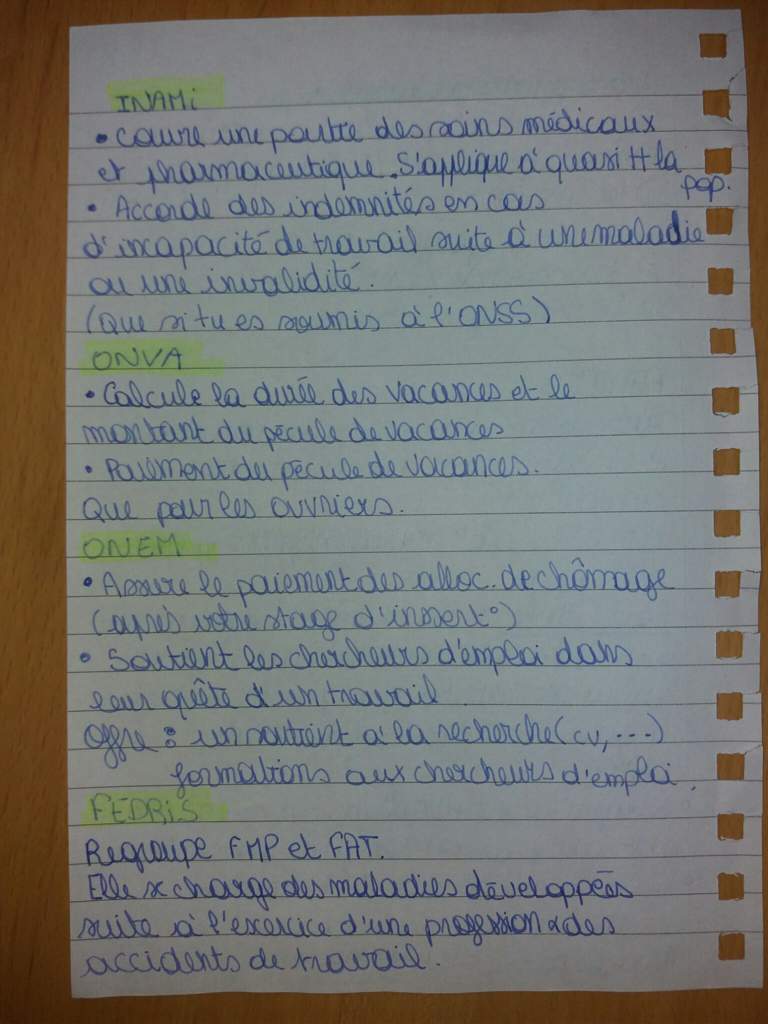 INAMi
• Couvre une partie des soins médicaux
et pharmaceutique. S'applique à quasi tt la
pop.
• Accorde des indemnités en cas
d'incapacité de travail suite à une maladie
ou une invalidité.
(Que si tu es soumis à l'ONSS)
ONVA
• Calcule la durée des vacances et le
montant du pécule de vacances
• Paiement du pécule de vacances.
Que pour les ouvriers.
ONEM
• Assure le paiement des alloc. de chômage
(après votre stage d'insert°)
• Soutient les chercheurs d'emploi dans
leur quête d'un travail
Offre : un soutient à la recherche (cv, ...)
formations aux chercheurs d'emploi.
FEDRIS
Regroupe FMP et FAT.
Elle x charge des maladies développées
suite à l'exercice d'une profession & des
accidents de travail.